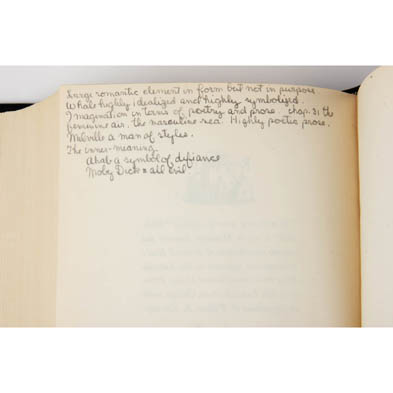 Large romantic element in form but not in purpose
Whale highly idealized and highly symbolized.
Imagination in terms of poetry and prose chap. 31 the
feminine air, the masculine sea. Highly poetic prose.
Melville a man of styles.
The inner-meaning.
Ahab a symbol of difiance
Moby Dick = all Evil